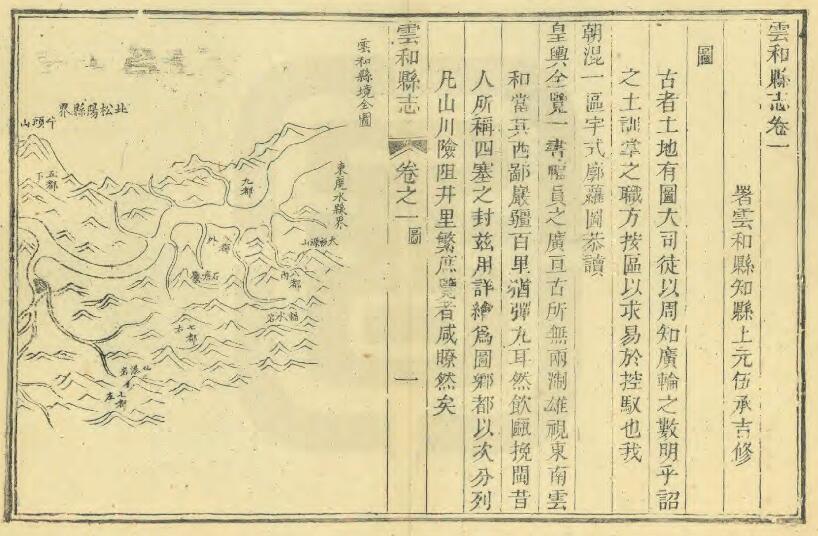 雲和縣志卷一
署雲和縣知縣上元伍承吉修
圖
古者土地有圖大司徒以周知廣輪之數明乎詔
之土訓掌之職方按區以求易於控馭也我
朝混一區宇式廓蘿圖恭讀
皇輿全覽一書幅員之廣亘古所無兩浙雄視東南雲
和當其西鄙巖疆百里猶彈丸耳然飲甌挽閩昔
人所稱四塞之封兹用詳繪爲圖鄉都以次分列
凡山川險阻井里繁庶覽者咸瞭然矣
雲和縣志
卷之一
圖
一
雲和縣境全圖
東麗水縣界
北松陽縣界
九都
五都
下
外
都
山
八都
內
石塘
水岩
七都
七都
庄